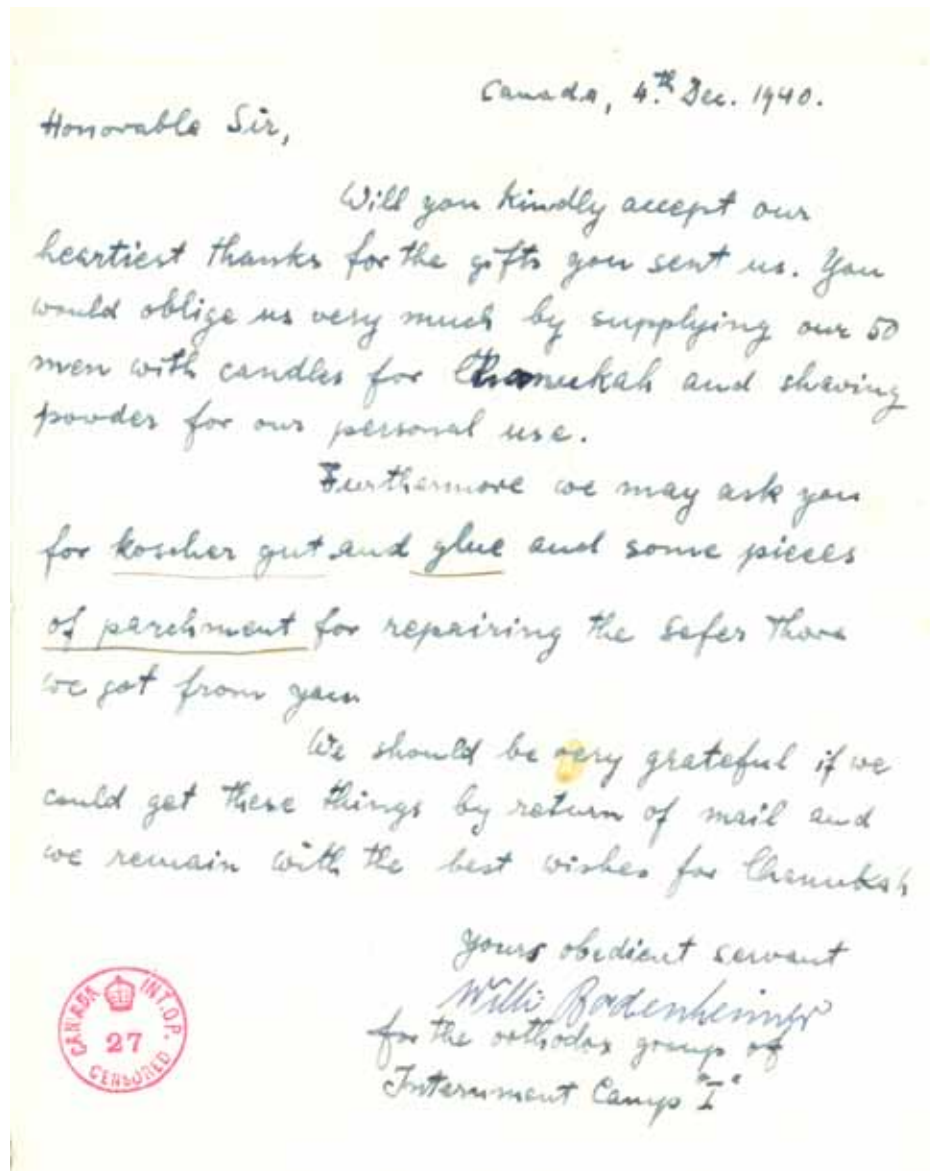 Canada, 4.th Dec. 1940.
Honorable Sir,
Will you kindly accept our
heartiest thanks for the gifts you sent us. You
would oblige us very much by supplying our 50
men with candles for Chanukah and shaving
powder for our personal use.
Furthermore we may ask you
for koscher gut and glue and some pieces
of parchment for repairing the Sefer Thora
we got from you
We should be very grateful if we
could get these things by return of mail and
we remain with the best wishes for Chanukah
yours obedient servant
Willi Badenheimer
for the orthodox group of
Internment Camp "I"
CANADA INT. O.P.
27
CENSORED